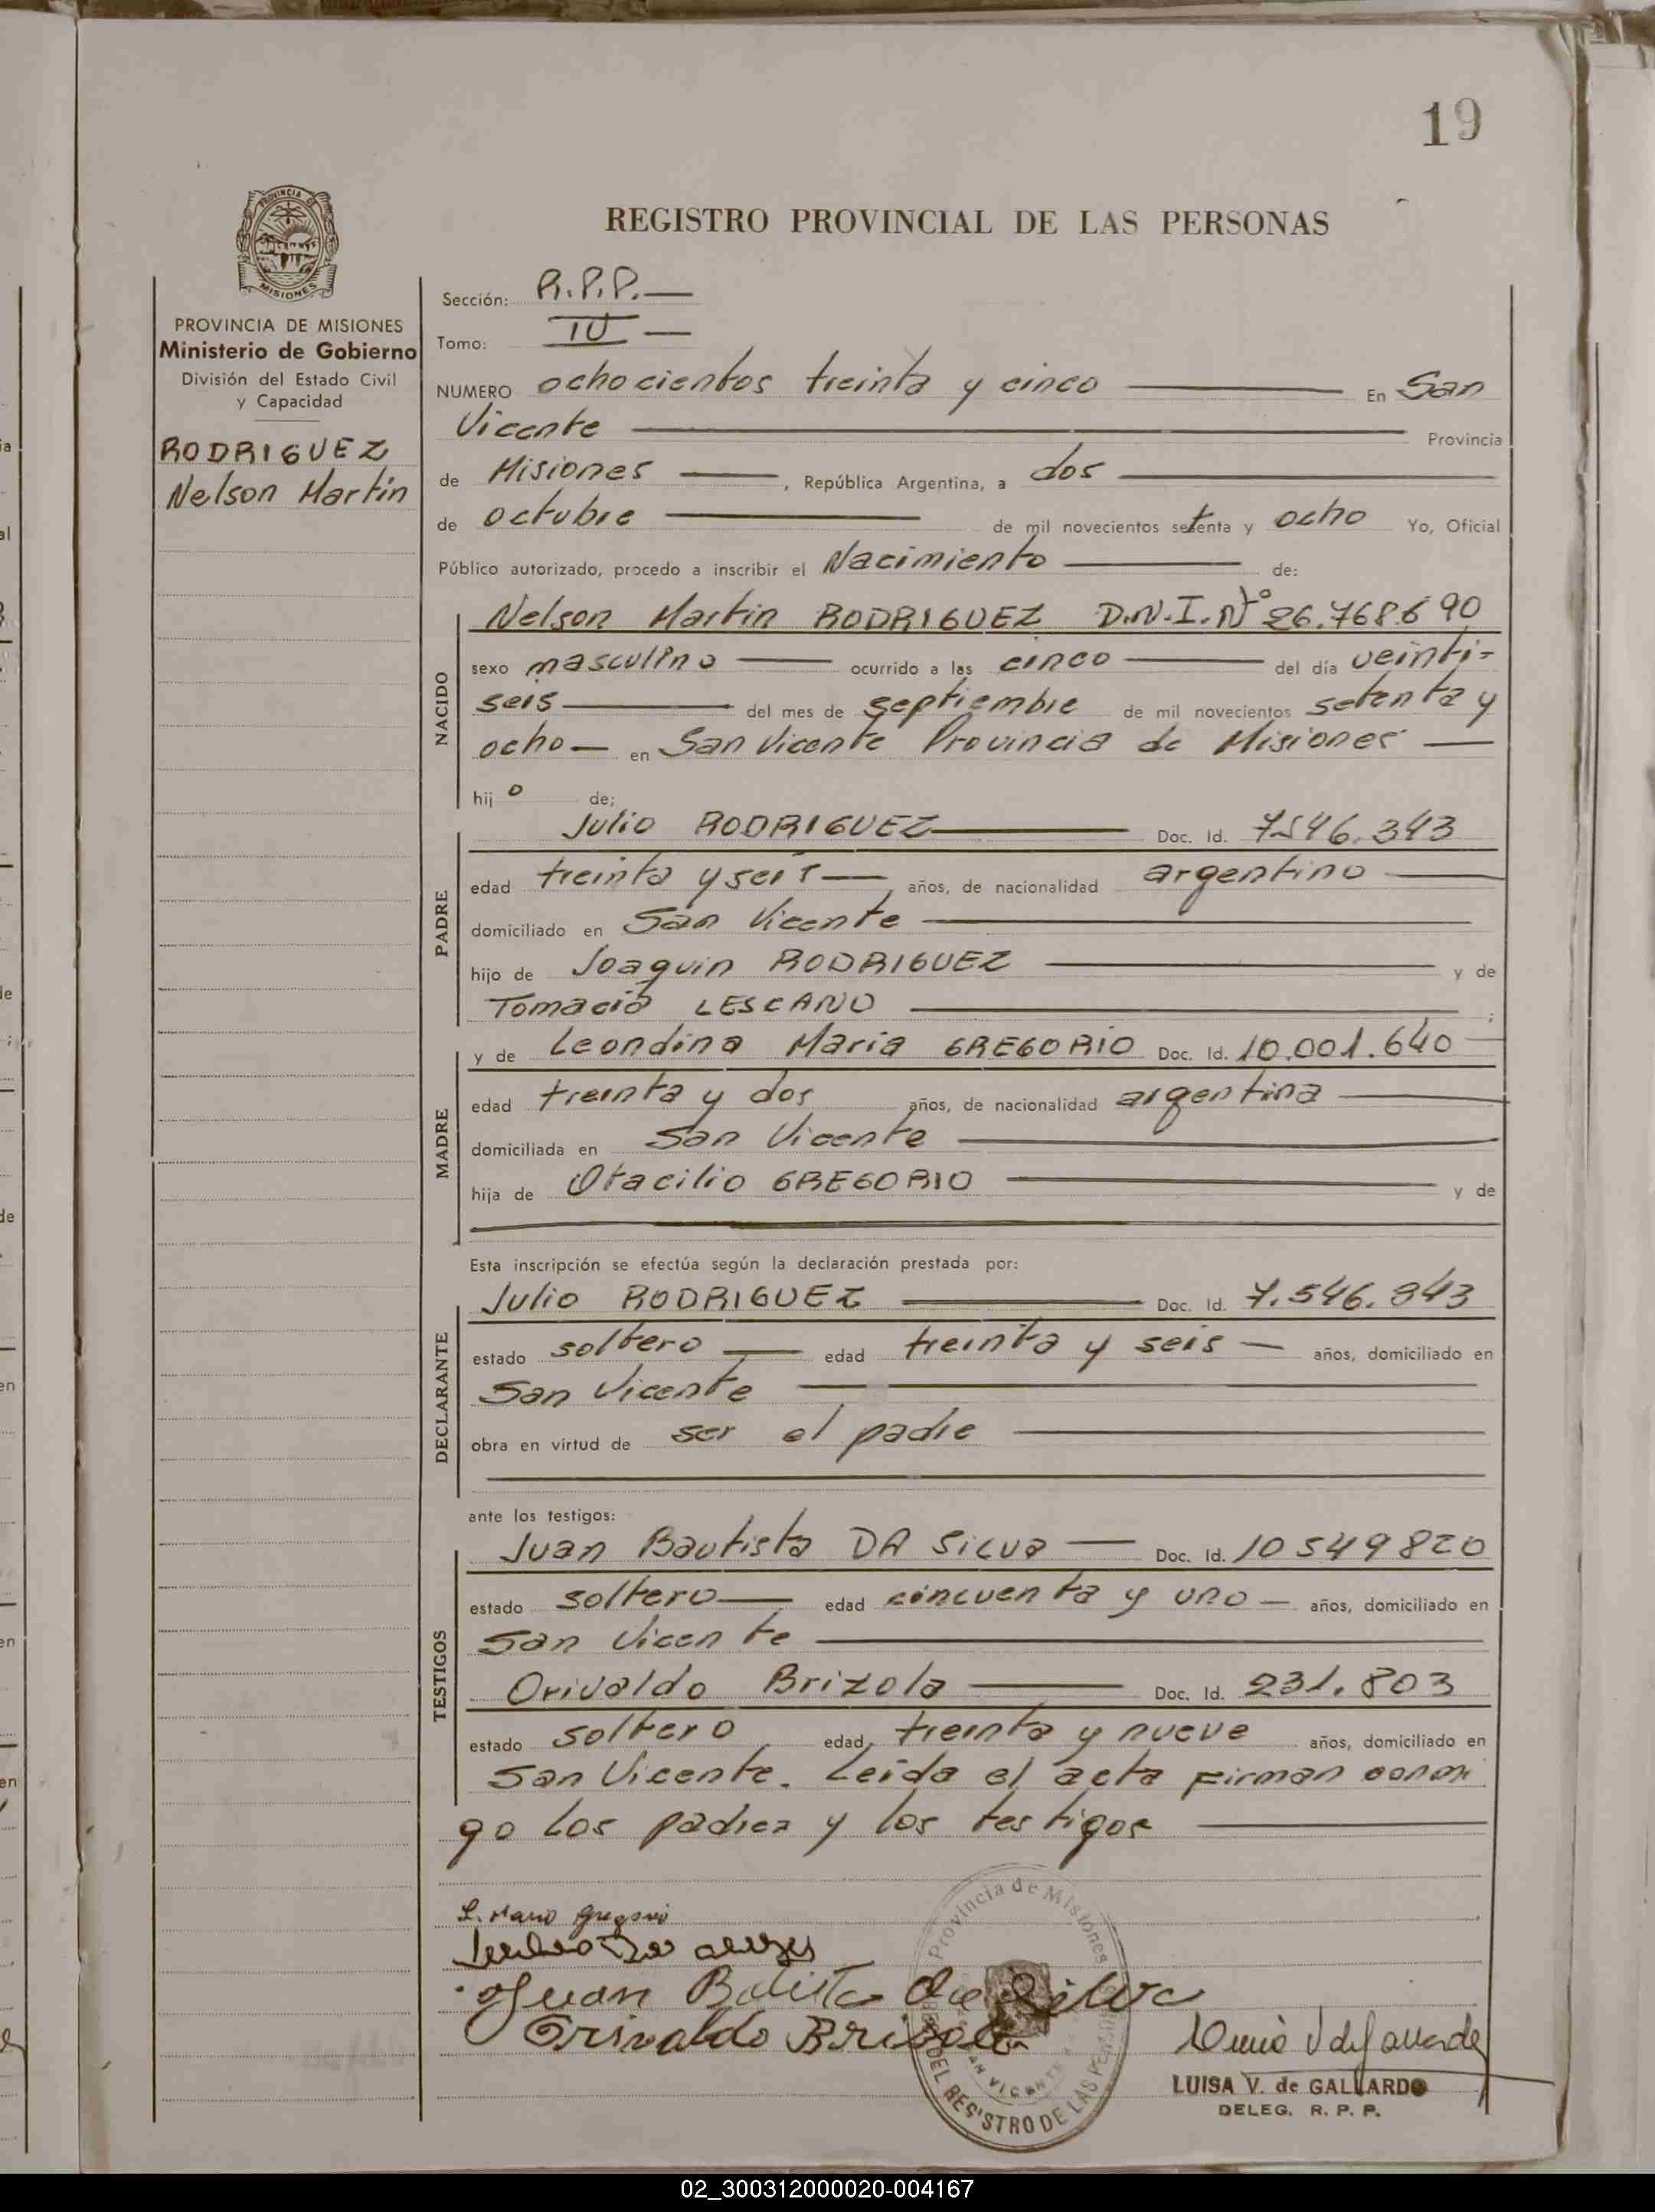 19
REGISTRO PROVINCIAL DE LAS PERSONAS
PROVINCIA DE MISIONES
Ministerio de Gobierno
División del Estado Civil
y Capacidad
RODRIGUEZ
Nelson Martin
Sección: R.P.P.
Tomo: IV
NUMERO ochocientos treinta y cinco En San
Vicente Provincia
de Misiones , República Argentina, a dos
de octubre de mil novecientos setenta y ocho Yo, Oficial
Público autorizado, procedo a inscribir el Nacimiento de:
NACIDO
Nelson Martin RODRIGUEZ D.N.I. Nº 26.768.690
sexo masculino ocurrido a las cinco del día veinti-
seis del mes de septiembre de mil novecientos setenta y
ocho en San Vicente Provincia de Misiones
hij o de;
PADRE
Julio RODRIGUEZ Doc. Id. 7546.343
edad treinta y seis años, de nacionalidad argentino
domiciliado en San Vicente
hijo de Joaquin RODRIGUEZ y de
Tomacia LESCANO ;
MADRE
y de Leondina Maria GREGORIO Doc. Id. 10.001.640
edad treinta y dos años, de nacionalidad argentina
domiciliada en San Vicente
hija de Otacilio GREGORIO y de
Esta inscripción se efectúa según la declaración prestada por:
DECLARANTE
Julio RODRIGUEZ Doc. Id. 7.546.343
estado soltero edad treinta y seis años, domiciliado en
San Vicente
obra en virtud de ser el padre
ante los testigos:
TESTIGOS
Juan Bautista DA SILVA Doc. Id. 10549820
estado soltero edad cincuenta y uno años, domiciliado en
San Vicente
Orivaldo Brizola Doc. Id. 231.803
estado soltero edad treinta y nueve años, domiciliado en
San Vicente. Leida el acta firman conmi
go los padres y los testigos
Juan Batista da Silva
Orivaldo Brizola
Provincia de Misiones
DEL REGISTRO DE LAS PERSONAS
SAN VICENTE
LUISA V. de GALLARDO
DELEG. R. P. P.
02_300312000020-004167